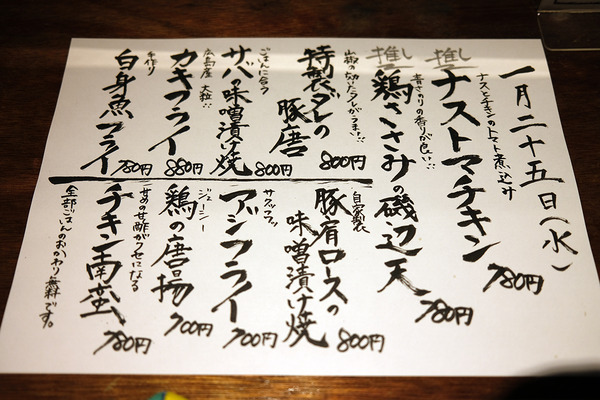 一月二十五日(水)
ナスとチキンのトマト煮込み
推し ナストマチキン 780円
青さのりの香りが良い…
推し 鶏ささみの磯辺天 780円
山椒の効いたタレがうまい…
特製ダレの豚唐 800円
ごはんに合う
サバの味噌漬け焼 800円
広島産 大粒…
カキフライ 880円
手作り
白身魚フライ 780円
自家製
豚肩ロースの味噌漬け焼 800円
サクッフワッ
アジフライ 700円
ジューシー
鶏の唐揚 700円
甘めの甘酢がクセになる
チキン南蛮 780円
全部ごはんのおかわり無料です。